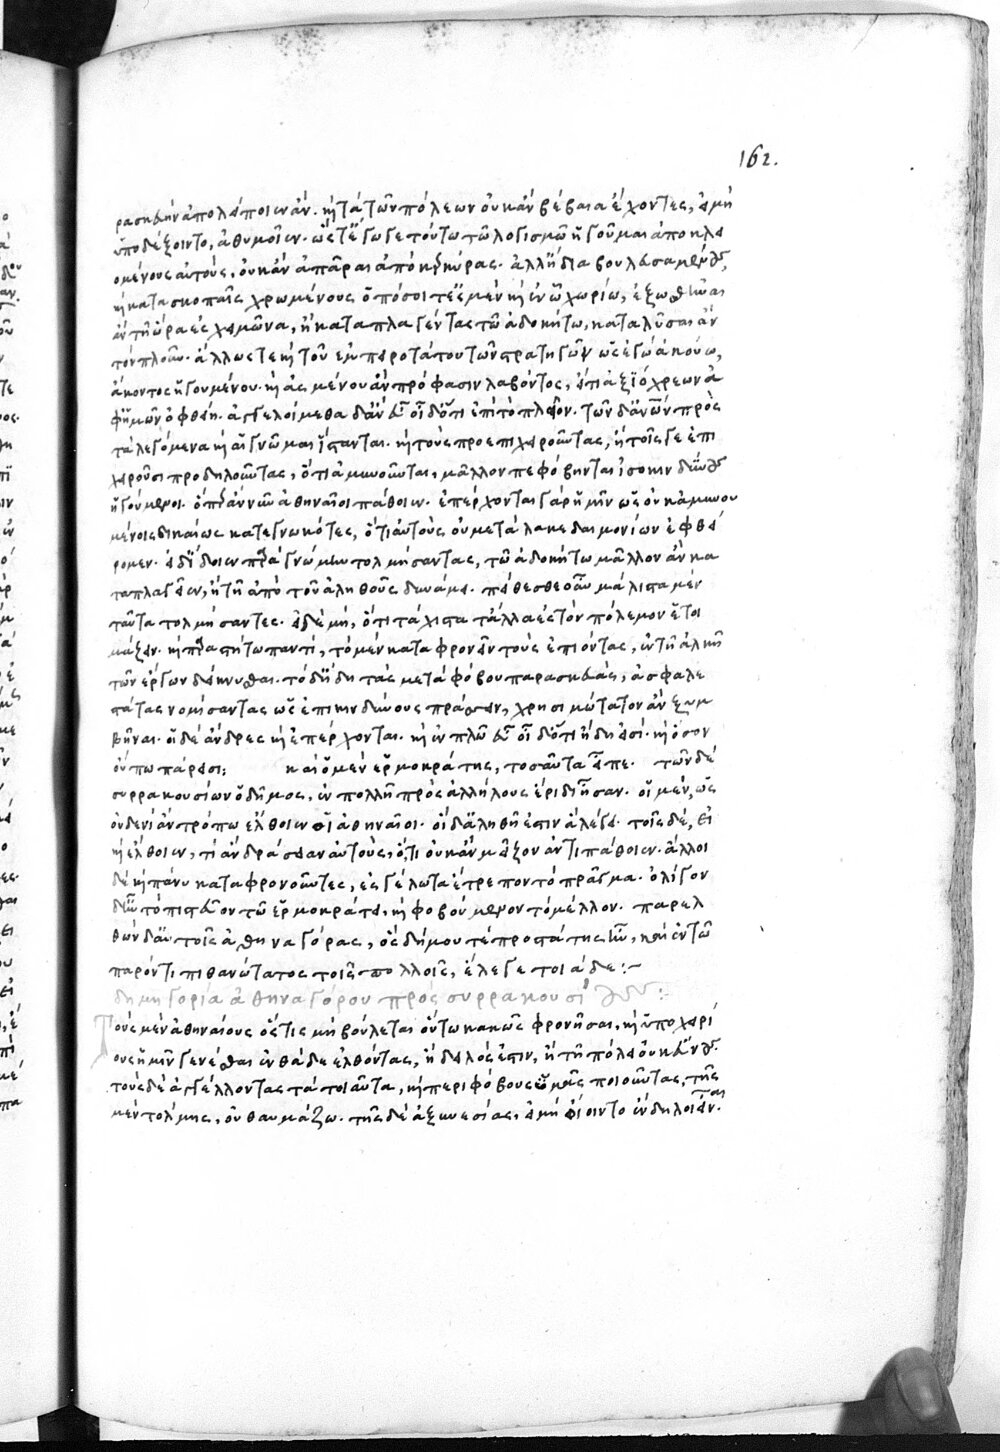 162.
ρασκευὴν ἀπολείποιεν ἄν. καὶ τὰ τῶν πόλεων οὐκ ἂν βέβαια ἔχοντες, εἰ μὴ
ὑποδέξοιντο, ἀθυμοῖεν. ὥστ' ἔγωγε τούτω τῶ λογισμῶ ἡγοῦμαι ἀποκλει
ομένους αὐτοὺς, οὐκ ἂν ἀπᾶραι ἀπὸ κερκύρας. ἀλλ' ἢ διαβουλευσαμένους,
καὶ κατασκοπαῖς χρωμένους ὁπόσοι τέ ἐσμεν καὶ ἐν ᾧ χωρίω, ἐξωσθῆναι
ἂν τῆ ὥρα ἐς χειμῶνα, ἢ καταπλαγέντας τῶ ἀδοκήτω, καταλῦσαι ἂν
τὸν πλοῦν. ἄλλως τε καὶ τοῦ ἐμπειροτάτου τῶν στρατηγῶν ὡς ἐγὼ ἀκούω,
ἄκοντος ἡγουμένου. καὶ ἀσμένου ἂν πρόφασιν λαβόντος, εἴ τι ἀξιόχρεων ἀ
φ' ἡμῶν ὀφθείη. ἀγγελοίμεθα δ' ἂν εὖ οἶδ' ὅτι ἐπὶ τὸ πλεῖον. τῶν δ' ἀνθρώπων πρὸς
τὰ λεγόμενα καὶ αἱ γνῶμαι ἵστανται. καὶ τοὺς προεπιχειροῦντας, ἢ τοῖς γε ἐπι
χειροῦσι προδηλοῦντας, ὅτι ἀμυνοῦνται, μᾶλλον πεφόβηνται ἰσοκινδύνους
ἡγούμενοι. ὅπερ ἂν νῦν ἀθηναῖοι πάθοιεν. ἐπέρχονται γὰρ ἡμῖν ὡς οὐκ ἀμυνου
μένοις δικαίως κατεγνωκότες, ὅτι αὐτοὺς οὐ μετὰ λακεδαιμονίων ἐφθεί
ρομεν. εἰ δ' ἴδοιεν παρὰ γνώμην τολμήσαντας, τῶ ἀδοκήτω μᾶλλον ἂν κα
ταπλαγεῖεν, ἢ τῆ ἀπὸ τοῦ ἀληθοῦς δυνάμει. πείθεσθε οὖν μάλιστα μὲν
ταῦτα τολμήσαντες. εἰ δὲ μὴ, ὅτι τάχιστα τἄλλα ἐς τὸν πόλεμον ἑτοι
μάζειν. καὶ παραστήτω παντὶ, τὸ μὲν καταφρονεῖν τοὺς ἐπιόντας, ἐν τῆ ἀλκῆ
τῶν ἔργων δείκνυσθαι. τὸ δ' ἤδη τὰς μετὰ φόβου παρασκευὰς, ἀσφαλε
στάτας νομίσαντας ὡς ἐπὶ κινδύνους πράσσειν, χρησιμώτατον ἂν ξυμ
βῆναι. οἱ δὲ ἄνδρες καὶ ἐπέρχονται. καὶ ἐν πλῶ εὖ οἶδ' ὅτι ἤδη εἰσὶ. καὶ ὅσον
οὔπω πάρεισι: καὶ ὁ μὲν ἑρμοκράτης, τοσαῦτα εἶπε. τῶν δὲ
συρρακουσίων ὁ δῆμος, ἐν πολλῆ πρὸς ἀλλήλους ἔριδι ἦσαν. οἱ μὲν, ὡς
οὐδενὶ ἂν τρόπω ἔλθοιεν οἱ ἀθηναῖοι. οἱ δ' ἀληθῆ ἐστιν ἃ λέγει. τοῖς δὲ, εἰ
καὶ ἔλθοιεν, τί ἂν δράσειαν αὐτοὺς, ὅτι οὐκ ἂν μεῖζον ἀντιπάθοιεν. ἄλλοι
δὲ καὶ πάνυ καταφρονοῦντες, ἐς γέλωτα ἔτρεπον τὸ πρᾶγμα. ὀλίγον
δ' ἦν τὸ πιστεῦον τῶ ἑρμοκράτει, καὶ φοβούμενον τὸ μέλλον. παρελ
θὼν δ' αὐτοῖς ἀθηναγόρας, ὃς δήμου τε προστάτης ἦν, καὶ ἐν τῶ
παρόντι πιθανώτατος τοῖς πολλοῖς, ἔλεγε τοιάδε:~
δημηγορία ἀθηναγόρου πρὸς συρρακουσίους:
Τοὺς μὲν ἀθηναίους ὅστις μὴ βούλεται οὕτω κακῶς φρονῆσαι, καὶ ὑποχειρί
ους ἡμῖν γενέσθαι ἐνθάδε ἐλθόντας, ἢ δειλός ἐστιν, ἢ τῆ πόλει οὐκ εὔνους.
τοὺς δὲ ἀγγέλλοντας τὰ τοιαῦτα, καὶ περιφόβους ὑμᾶς ποιοῦντας, τῆς
μὲν τόλμης, οὐ θαυμάζω. τῆς δὲ ἀξυνεσίας, εἰ μὴ οἴονται ἔνδηλοι εἶναι.